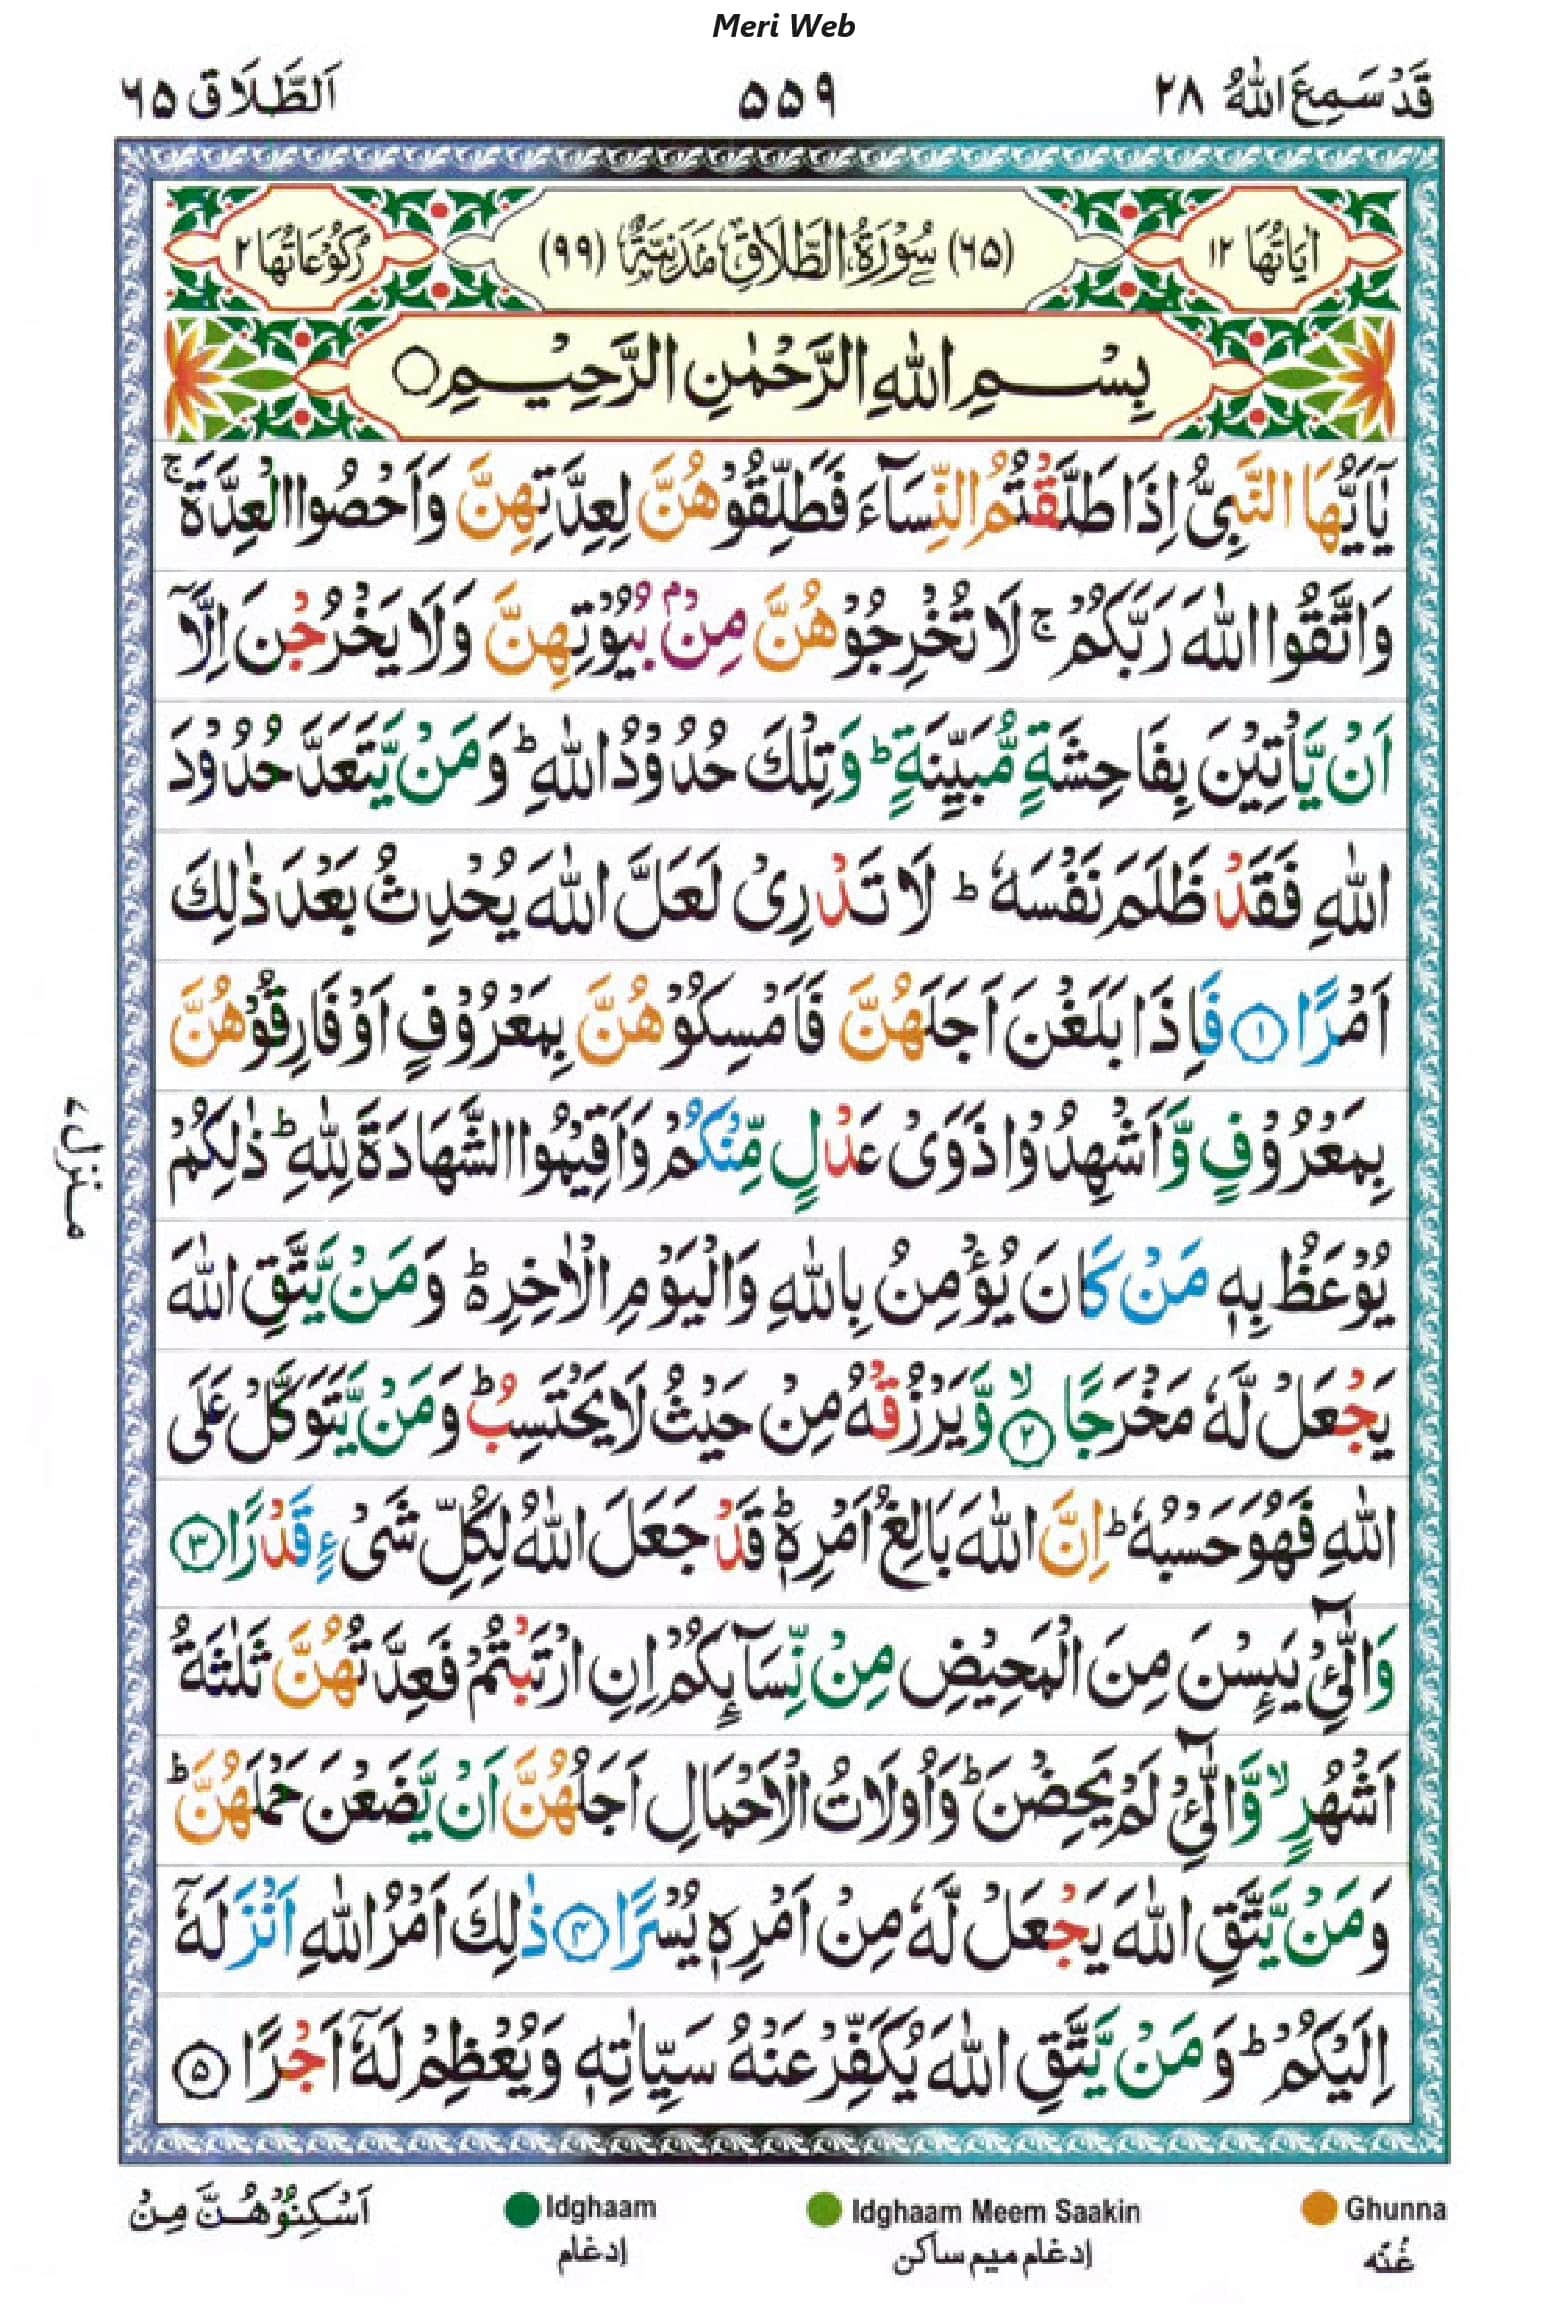 Meri Web
قَدْ سَمِعَ اللّٰهُ ٢٨
٥٥٩
اَلطَّلَاق ٦٥
اٰيَاتُهَا ١٢
(٦٥) سُوْرَةُ الطَّلَاقِ مَدَنِيَّةٌ (٩٩)
رُكُوْعَاتُهَا ٢
بِسْمِ اللّٰهِ الرَّحْمٰنِ الرَّحِيْمِ ○
يٰۤاَيُّهَا النَّبِىُّ اِذَا طَلَّقْتُمُ النِّسَآءَ فَطَلِّقُوْهُنَّ لِعِدَّتِهِنَّ وَاَحْصُوا الْعِدَّةَ ۚ
وَاتَّقُوا اللّٰهَ رَبَّكُمْ ۚ لَا تُخْرِجُوْهُنَّ مِنْۢ بُيُوْتِهِنَّ وَلَا يَخْرُجْنَ اِلَّاۤ
اَنْ يَّاْتِيْنَ بِفَاحِشَةٍ مُّبَيِّنَةٍ ؕ وَتِلْكَ حُدُوْدُ اللّٰهِ ؕ وَمَنْ يَّتَعَدَّ حُدُوْدَ
اللّٰهِ فَقَدْ ظَلَمَ نَفْسَهٗ ؕ لَا تَدْرِىْ لَعَلَّ اللّٰهَ يُحْدِثُ بَعْدَ ذٰلِكَ
اَمْرًا ۝١ فَاِذَا بَلَغْنَ اَجَلَهُنَّ فَاَمْسِكُوْهُنَّ بِمَعْرُوْفٍ اَوْ فَارِقُوْهُنَّ
بِمَعْرُوْفٍ وَّاَشْهِدُوْا ذَوَىْ عَدْلٍ مِّنْكُمْ وَاَقِيْمُوا الشَّهَادَةَ لِلّٰهِ ؕ ذٰلِكُمْ
يُوْعَظُ بِهٖ مَنْ كَانَ يُؤْمِنُ بِاللّٰهِ وَالْيَوْمِ الْاٰخِرِ ؕ۬ وَمَنْ يَّتَّقِ اللّٰهَ
يَجْعَلْ لَّهٗ مَخْرَجًا ۙ۝٢ وَّيَرْزُقْهُ مِنْ حَيْثُ لَا يَحْتَسِبُ ؕ وَمَنْ يَّتَوَكَّلْ عَلَى
اللّٰهِ فَهُوَ حَسْبُهٗ ؕ اِنَّ اللّٰهَ بَالِغُ اَمْرِهٖ ؕ قَدْ جَعَلَ اللّٰهُ لِكُلِّ شَىْءٍ قَدْرًا ۝٣
وَالّٰٓـِٔىْ يَىِٕسْنَ مِنَ الْمَحِيْضِ مِنْ نِّسَآىِٕكُمْ اِنِ ارْتَبْتُمْ فَعِدَّتُهُنَّ ثَلٰثَةُ
اَشْهُرٍ ۙ وَّالّٰٓـِٔىْ لَمْ يَحِضْنَ ؕ وَاُولَاتُ الْاَحْمَالِ اَجَلُهُنَّ اَنْ يَّضَعْنَ حَمْلَهُنَّ ؕ
وَمَنْ يَّتَّقِ اللّٰهَ يَجْعَلْ لَّهٗ مِنْ اَمْرِهٖ يُسْرًا ۝٤ ذٰلِكَ اَمْرُ اللّٰهِ اَنْزَلَهٗۤ
اِلَيْكُمْ ؕ وَمَنْ يَّتَّقِ اللّٰهَ يُكَفِّرْ عَنْهُ سَيِّاٰتِهٖ وَيُعْظِمْ لَهٗۤ اَجْرًا ۝٥
منزل ٧
اَسْكِنُوْهُنَّ مِنْ
Idghaam
إدغام
Idghaam Meem Saakin
إدغام ميم ساكن
Ghunna
غُنّه